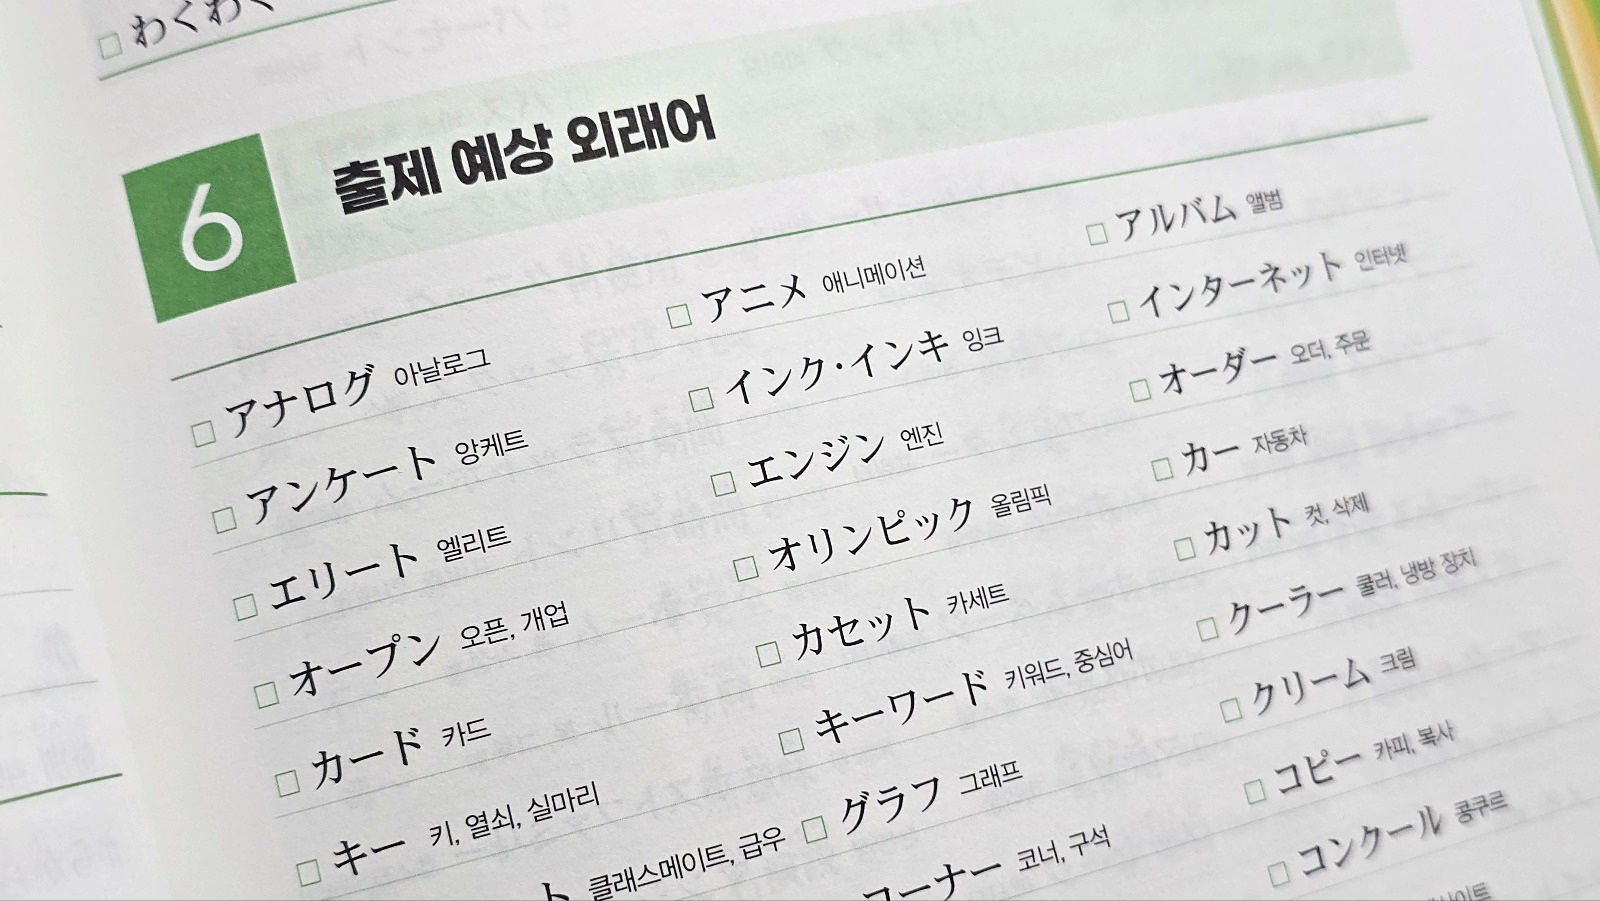 □ わくわく
6 출제 예상 외래어
□ アナログ 아날로그 □ アニメ 애니메이션 □ アルバム 앨범
□ アンケート 앙케트 □ インク・インキ 잉크 □ インターネット 인터넷
□ エリート 엘리트 □ エンジン 엔진 □ オーダー 오더, 주문
□ オープン 오픈, 개업 □ オリンピック 올림픽 □ カー 자동차
□ カード 카드 □ カセット 카세트 □ カット 컷, 삭제
□ キー 키, 열쇠, 실마리 □ キーワード 키워드, 중심어 □ クーラー 쿨러, 냉방 장치
ト 클래스메이트, 급우 □ グラフ 그래프 □ クリーム 크림
コーナー 코너, 구석 □ コピー 카피, 복사
□ コンクール 콩쿠르